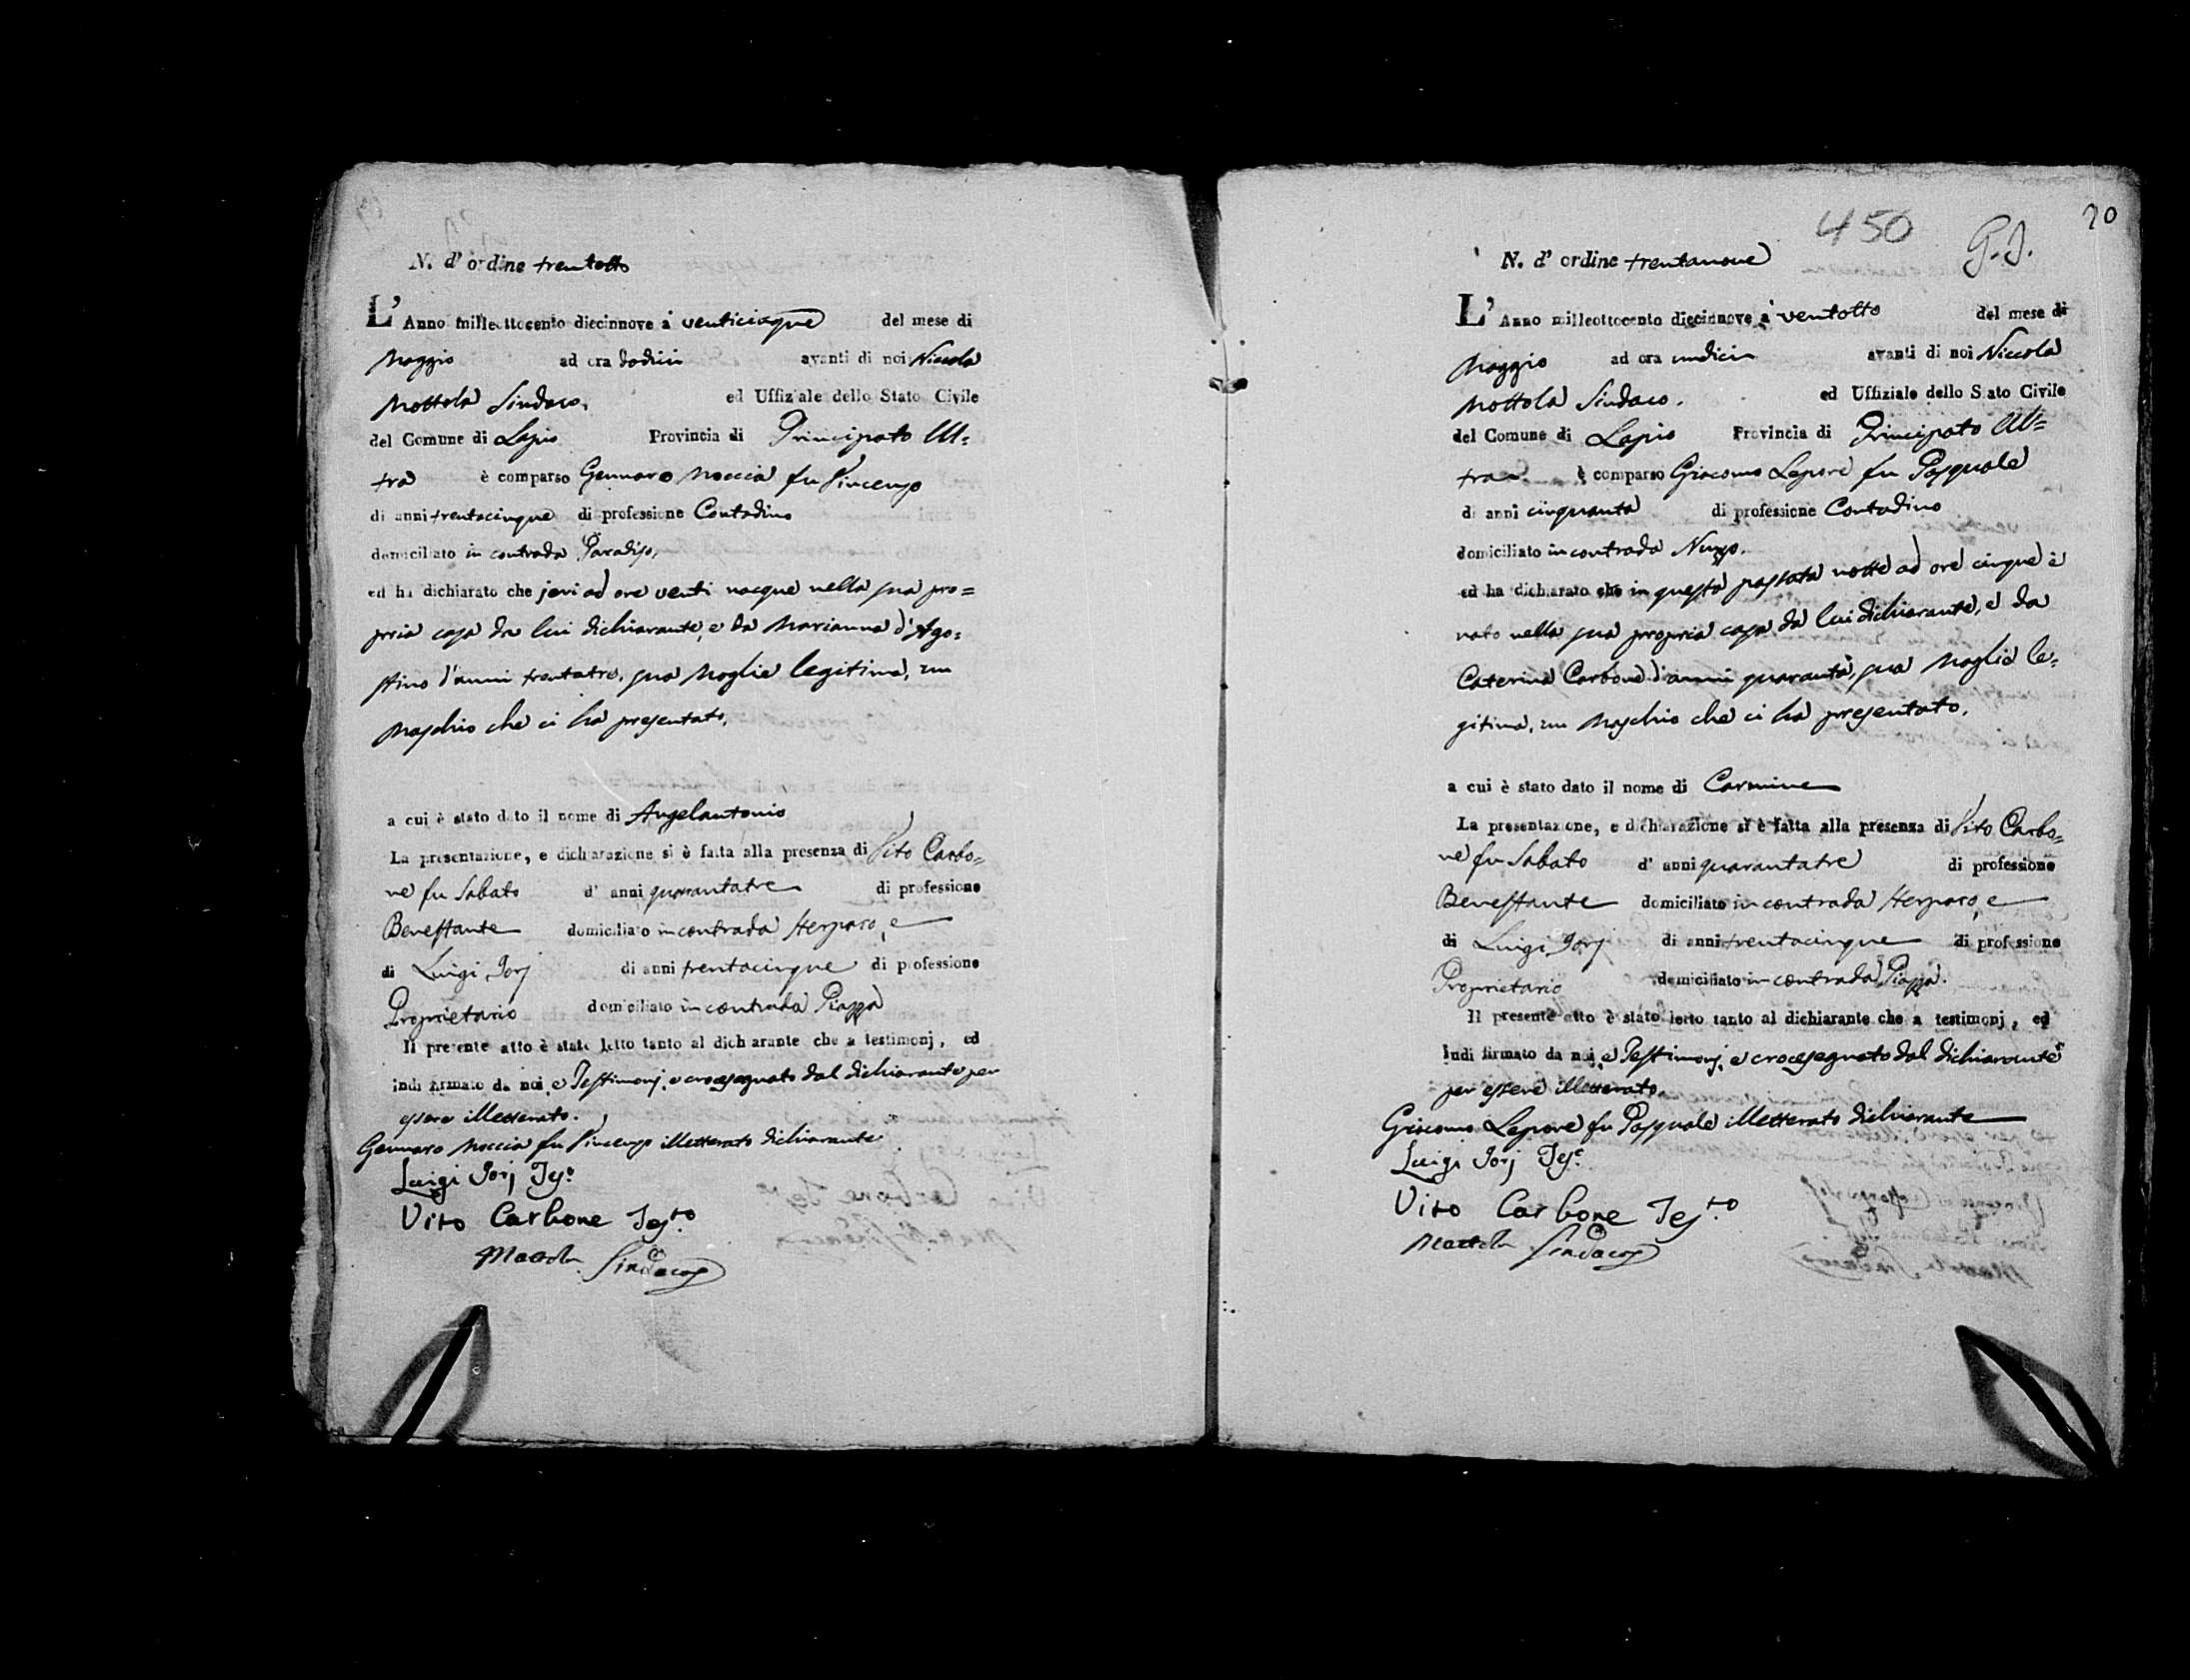 N. d' ordine trentotto
L' Anno milleottocento diecinnove à venticinque del mese di
Maggio ad ora dodici avanti di noi Niccola
Mottola Sindaco, ed Uffiziale dello Stato Civile
del Comune di Lapio Provincia di Principato Ul=
tra è comparso Gennaro Moccia fu Vincenzo
di anni trentacinque di professione Contadino
domiciliato in contrada Paradiso,
ed ha dichiarato che jeri ad ore venti nacque nella sua pro=
pria casa da lui dichiarante, e da Marianna d'Ago=
stino d'anni trentatre, sua Moglie legitima, un
Maschio che ci ha presentato,
a cui è stato dato il nome di Angelantonio
La presentazione, e dichiarazione si è fatta alla presenza di Vito Carbo=
ne fu Sabato d' anni quarantatre di professione
Benestante domiciliato in contrada Sterparo, e
di Luigi Jorj di anni trentacinque di professione
Proprietario domiciliato in contrada Piazza
Il presente atto è stato letto tanto al dichiarante che a testimonj, ed
indi firmato da noi, e Testimonj, e crocesegnato dal dichiarante per
essere illetterato.
Gennaro Moccia fu Vincenzo illetterato dichiarante
Luigi Jorj Tes.e
Vito Carbone Tes.to
Mottola Sindaco
450 G.J. 20
N. d' ordine trentanove
L' Anno milleottocento diecinnove à ventotto del mese di
Maggio ad ora undici avanti di noi Niccola
Mottola Sindaco. ed Uffiziale dello Stato Civile
del Comune di Lapio Provincia di Principato Ul=
tra è comparso Giacomo Lepore fu Pasquale
di anni cinquanta di professione Contadino
domiciliato in contrada Nuzzo.
ed ha dichiarato che in questa passata notte ad ore cinque è
nato nella sua propria casa da lui dichiarante, e da
Caterina Carbone d'anni quaranta, sua Moglie le=
gitima, un Maschio che ci ha presentato,
a cui è stato dato il nome di Carmine
La presentazione, e dichiarazione si è fatta alla presenza di Vito Carbo=
ne fu Sabato d' anni quarantatre di professione
Benestante domiciliato in contrada Sterparo, e
di Luigi Jorj di anni trentacinque di professione
Proprietario domiciliato in contrada Piazza.
Il presente atto è stato letto tanto al dichiarante che a testimonj, ed
indi firmato da noi, e Testimonj, e crocesegnato dal dichiarante
per essere illetterato.
Giacomo Lepore fu Pasquale illetterato dichiarante
Luigi Jorj Tes.e
Vito Carbone Tes.to
Mottola Sindaco